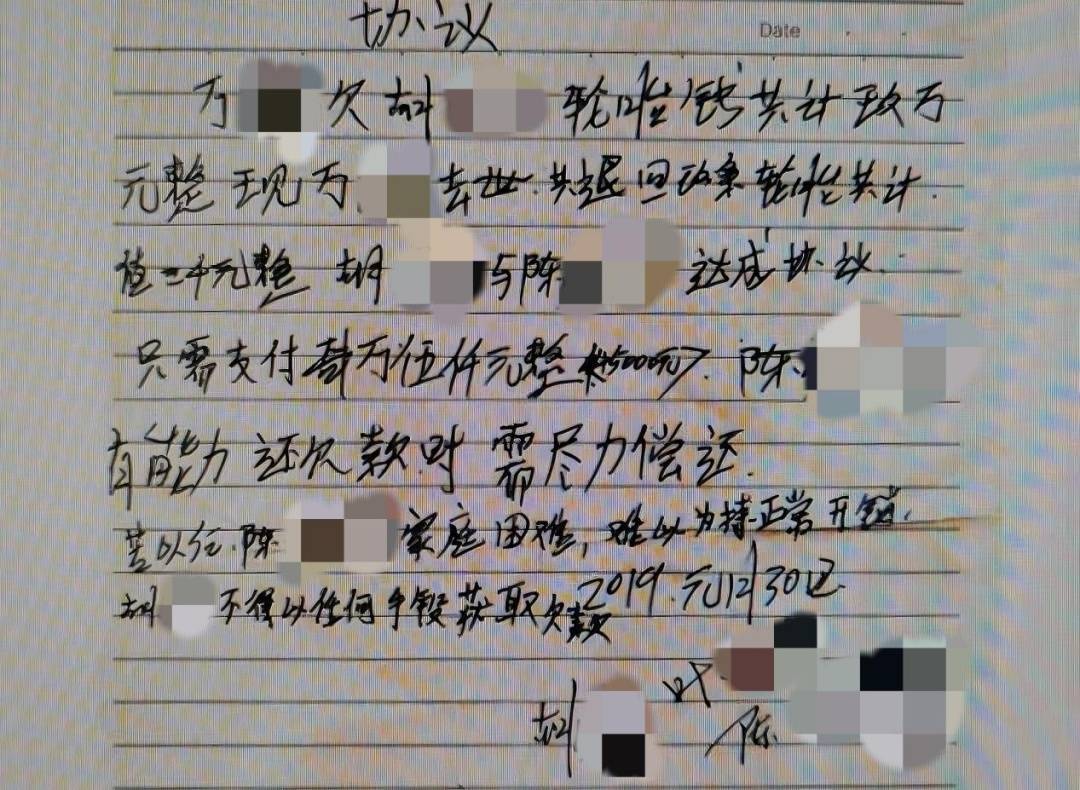 协议
Date
万 欠 胡 轮胎钱共计 万
元整 现万 去世.共退回 轮胎共计.
值二千元整 胡 与陈 达成协议.
只需支付 万伍仟元整 陈
有能力还欠款时 需尽力偿还.
若以后陈 家庭困难,难以为持正常开销.
胡 不得以任何手段获取欠款
2019.元12月30日
胡 叶
陈